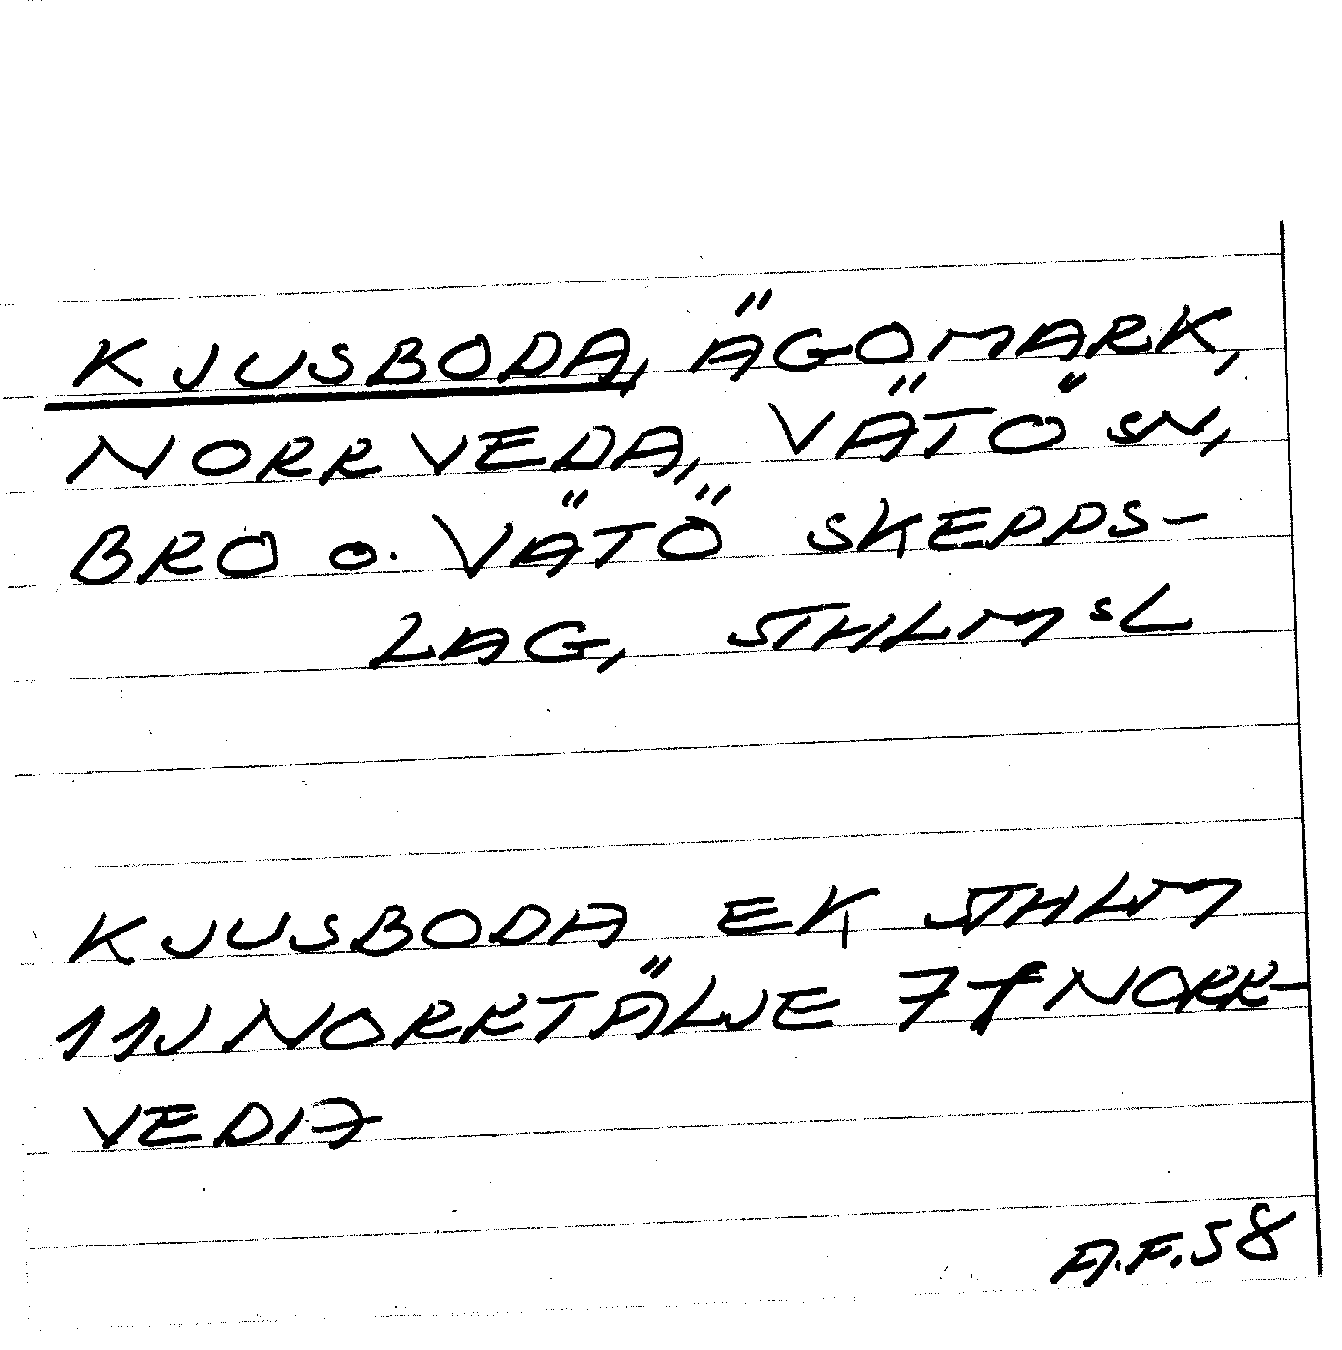 KJUSBODA, ÄGOMARK,
NORRVEDA, VÄTÖ SN,
BRO o. VÄTÖ SKEPPS-
LAG, STHLMSL
KJUSBODA EK STHLM
11J NORRTÄLJE 7f NORR-
VEDA
A.F.58